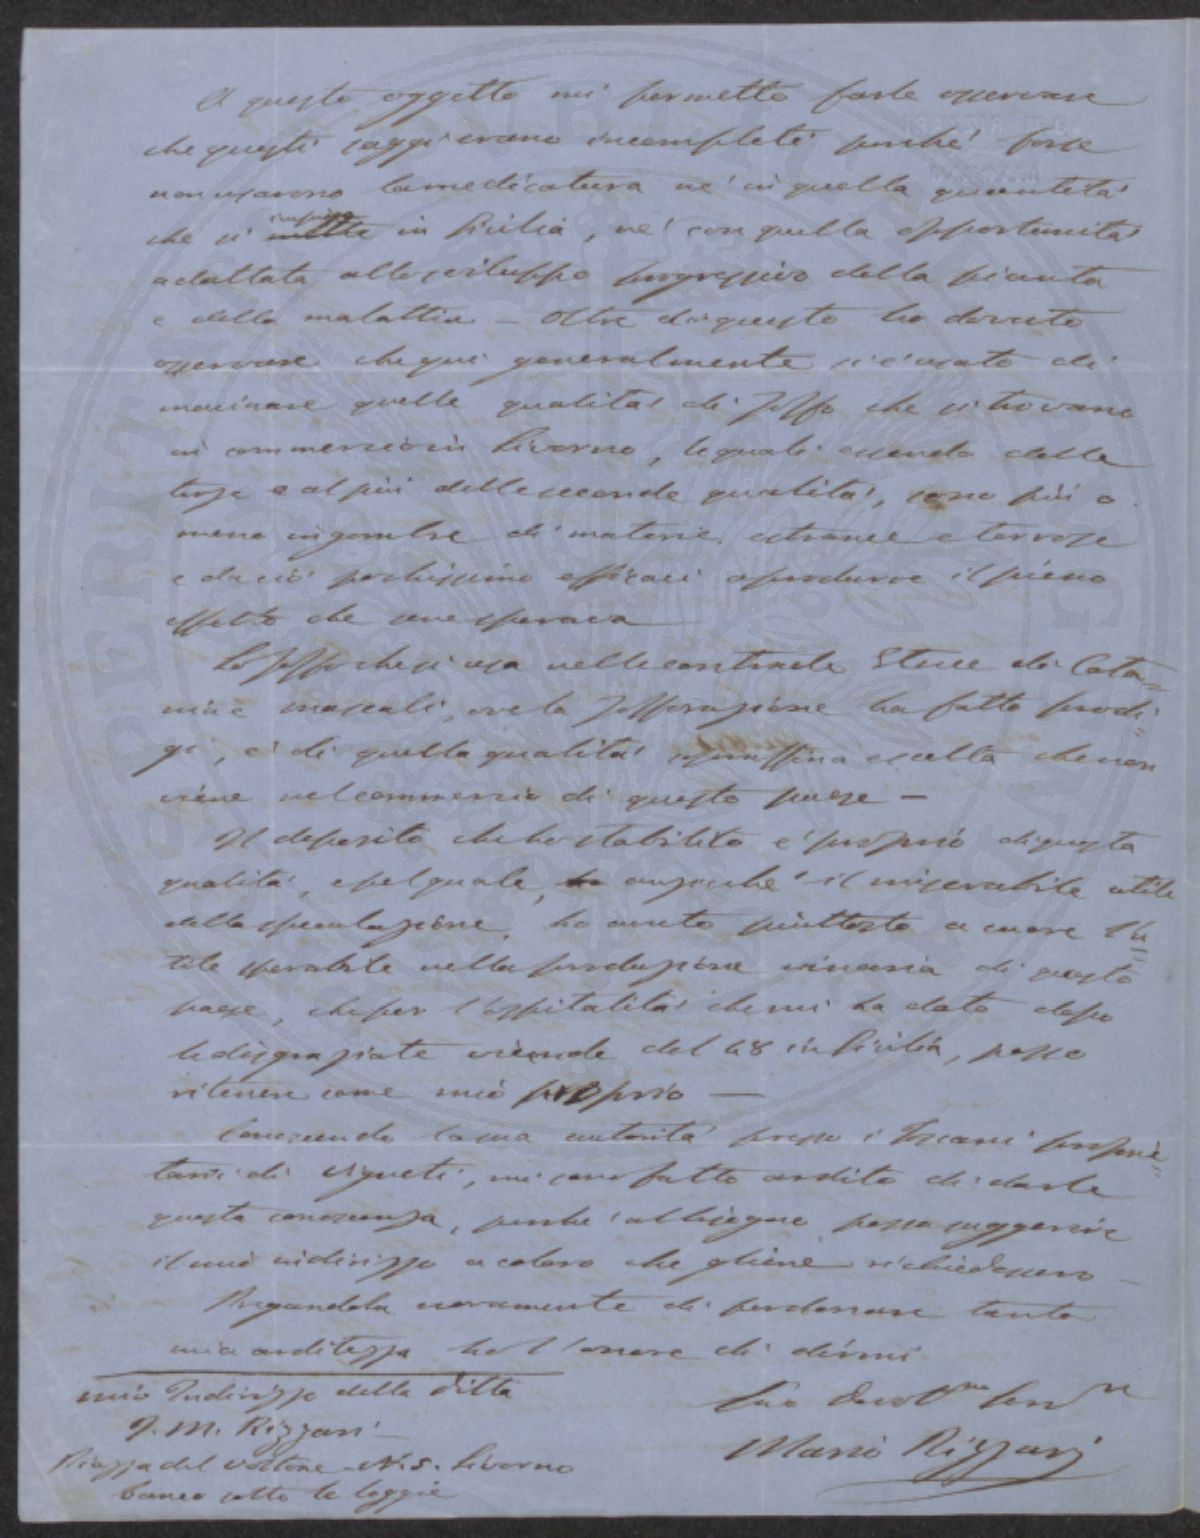 A questo oggetto mi permetto farle osservare
che questi saggi erano incompleti perché forse
non usarono la medicatura né in quella quantità
che si impiega in Sicilia, né con quella opportunità
adattata allo sviluppo progressivo della pianta
e della malattia — Oltre di questo ho dovuto
osservare che qui generalmente si è usato di
macinare quelle qualità di Zolfo che si trovano
in commercio in Livorno, le quali essendo delle
terze e al più delle seconde qualità, sono più o
meno ingombre di materie estranee e terrose
e da ciò pochissimo efficaci a produrre il pieno
effetto che se ne sperava
Lo Zolfo che si usa nelle contrade Etnee di Cata-
nia e Mascali, ove la Zolforazione ha fatto prodi-
gi, è di quella qualità sopraffina e scelta che non
viene nel commercio di questo paese —
Il deposito che ho stabilito è proprio di questa
qualità, e pel quale, anziché il miserabile utile
della speculazione, ho avuto piuttosto a cuore l'u-
tile sperabile nella produzione vinaria di questo
paese, che per l'ospitalità che mi ha dato dopo
le disgraziate vicende del 48 in Sicilia, posso
ritenere come mio proprio —
Conoscendo la sua autorità presso i Toscani proprie-
tarj di vigneti, mi sono fatto ardito di darle
questa conoscenza, perché al bisogno possa suggerire
il mio indirizzo a coloro che gliene richiedessero —
Pregandola novamente di perdonare tanta
mia arditezza ho l'onore di dirmi
Suo Devot.mo Serv.re
Mario Rizzari
mio Indirizzo della Ditta
J. M. Rizzari —
Piazza del Voltone N. 5. Livorno
banco sotto le loggie